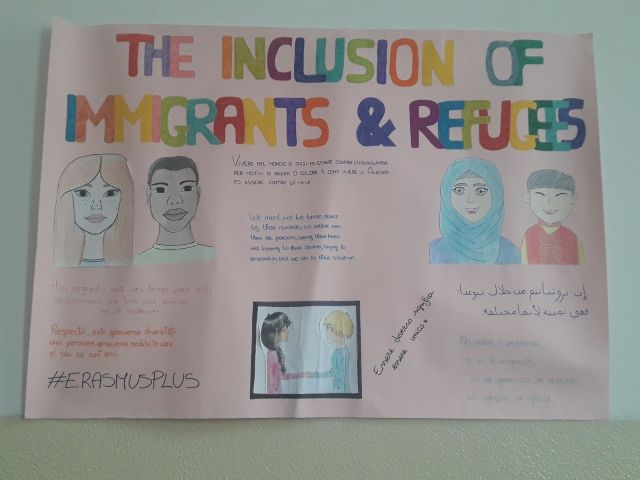 THE INCLUSION OF
IMMIGRANTS & REFUGEES
VIVERE NEL MONDO DI OGGI ED ESSERE CONTRO L'UGUAGLIANZA
PER MOTIVI DI RAZZA O COLORE È COME VIVERE IN ALASKA
ED ESSERE CONTRO LA NEVE
We must not be taken aback
by their numbers, but rather view
them as persons, seeing their faces
and listening to their stories, trying to
respond as best we can to their situation.
"Les migrants sont des héros parce qu'ils
abandonnent une terre pour une
meilleure"
Respectul este aprecierea diversității
unei persoane, aprecierea modului în care
el sau ea sunt unici
#ERASMUSPLUS
Essere diverso significa
essere unico
إن
من خلال تنوعنا
فهي لأنها مختلفة
No existe el problema
de la